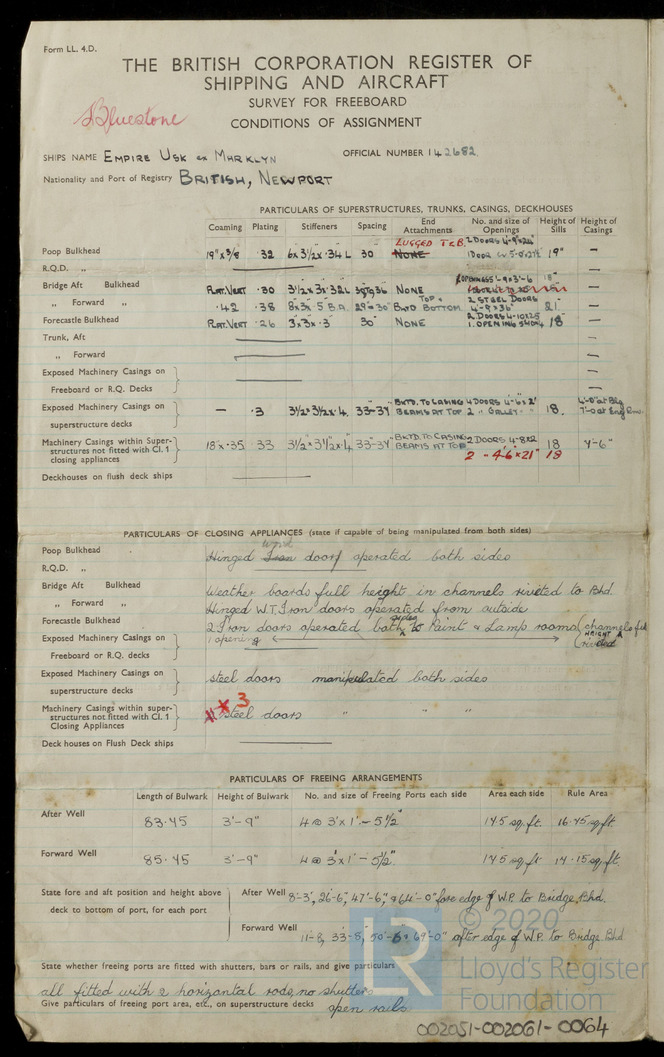 Form LL. 4.D.
THE BRITISH CORPORATION REGISTER OF
SHIPPING AND AIRCRAFT
SURVEY FOR FREEBOARD
Bluestone
CONDITIONS OF ASSIGNMENT
SHIPS NAME EMPIRE USK ex MARKLYN OFFICIAL NUMBER 142682
Nationality and Port of Registry BRITISH, NEWPORT
PARTICULARS OF SUPERSTRUCTURES, TRUNKS, CASINGS, DECKHOUSES
Coaming Plating Stiffeners Spacing End Attachments No. and size of Openings Height of Sills Height of Casings
LUGGED T & B.
Poop Bulkhead 19" x 3/8 .32 6 x 3½ x .34 L 30 NONE 19" –
R.Q.D. „ –
Bridge Aft Bulkhead FLAT. VERT .30 3½ x 3 x .32 L NONE 18" –
„ Forward „ .42 .38 29" & 30" BKTD TOP & BOTTOM 2 STEEL DOORS 4-9 x 36" 21" –
Forecastle Bulkhead FLAT. VERT .26 3 x 3 x .3 30" NONE 2 DOORS 4-10 x 25 1. OPENING 18" –
Trunk, Aft –
„ Forward –
Exposed Machinery Casings on
Freeboard or R.Q. Decks –
Exposed Machinery Casings on
superstructure decks – .3 3½ x 3½ x .4 33-34 BKTD. TO CASING BEAMS AT TOP 4 DOORS 4-6 x 2' 2 " GALLEY " 18. 7-0 at Eng Rm.
Machinery Casings within Super-
structures not fitted with Cl. 1
closing appliances 18 x .35 .33 3½ x 3½ x .4 33-34 BKTD. TO CASING BEAMS AT TOP 2 DOORS 4-8 x 2 18 7-6"
2 - 4-6 x 21" 18
Deckhouses on flush deck ships
PARTICULARS OF CLOSING APPLIANCES (state if capable of being manipulated from both sides)
Poop Bulkhead Hinged Iron wood doors operated both sides
R.Q.D. „
Bridge Aft Bulkhead Weather boards full height in channels riveted to Bhd.
„ Forward „ Hinged W.T. Iron doors operated from outside
Forecastle Bulkhead 2 Iron doors operated both sides to Paint & Lamp rooms
1 opening channels full HEIGHT & riveted
Exposed Machinery Casings on
Freeboard or R.Q. decks
Exposed Machinery Casings on
superstructure decks steel doors manipulated both sides
Machinery Casings within super-
structures not fitted with Cl. 1
Closing Appliances 3 steel doors " " "
Deck houses on Flush Deck ships
PARTICULARS OF FREEING ARRANGEMENTS
Length of Bulwark Height of Bulwark No. and size of Freeing Ports each side Area each side Rule Area
After Well 83.45 3'-9" 4 @ 3' x 1'-5½" 17.5 sq. ft. 16.45 sq. ft.
Forward Well 85.45 3'-9" 4 @ 3' x 1'-5½" 17.5 sq. ft. 14.15 sq. ft.
State fore and aft position and height above
deck to bottom of port, for each port
After Well 8'-3", 26'-6", 47'-6", & 64'-0" fore edge of W.P. to Bridge Bhd.
Forward Well 11-8, 33-5, 50'-6 & 69'-0" after edge of W.P. to Bridge Bhd
State whether freeing ports are fitted with shutters, bars or rails, and give particulars
all fitted with 2 horizantal rods, no shutters
Give particulars of freeing port area, etc., on superstructure decks open rails
LR
© 2020
Lloyd's Register
Foundation
002051-002061-0064